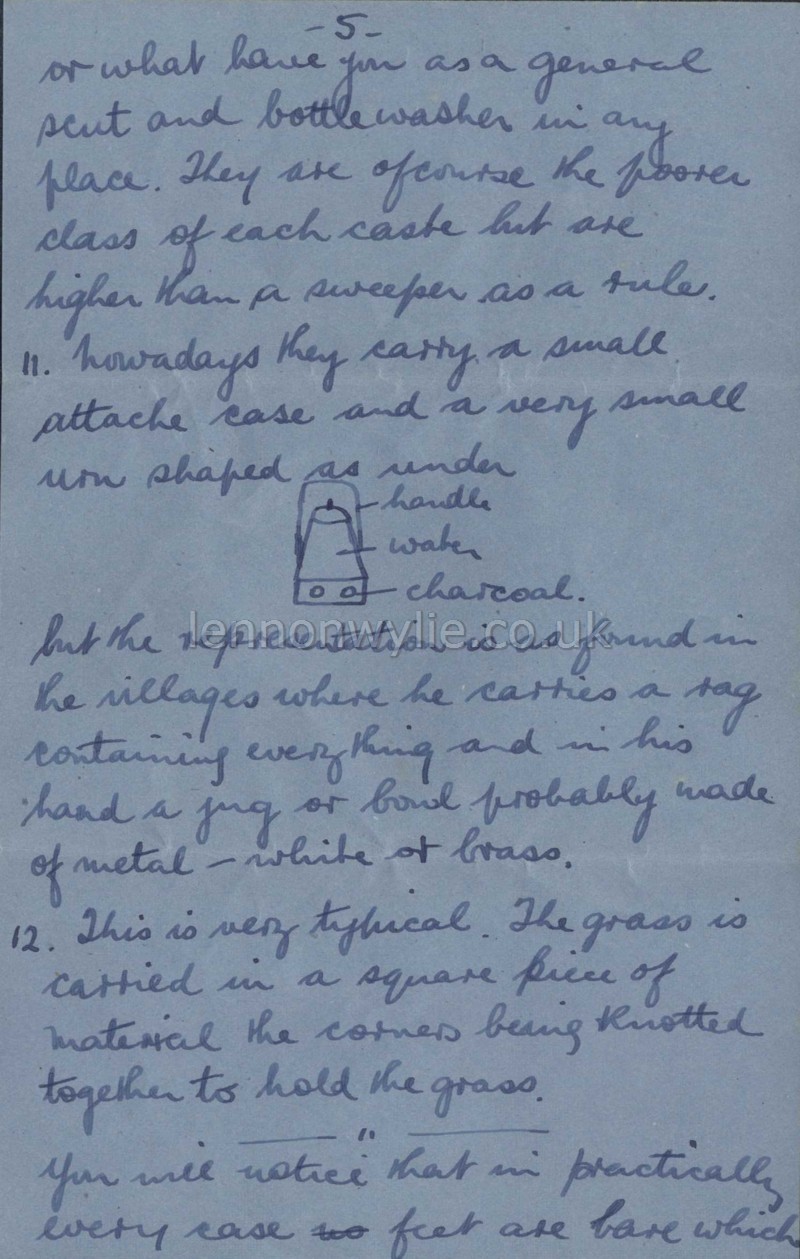 -5-
or what have you as a general
scut and bottlewasher in any
place. They are ofcourse the poorer
class of each caste but are
higher than a sweeper as a rule.
11. Nowadays they carry a small
attache case and a very small
urn shaped as under
handle
water
charcoal.
but the representation is as found in
lennonwylie.co.uk
the villages where he carries a rag
containing everything and in his
hand a jug or bowl probably made
of metal – white or brass.
12. This is very typical. The grass is
carried in a square piece of
material the corners being knotted
together to hold the grass.
— " —
You will notice that in practically
every case no feet are bare which